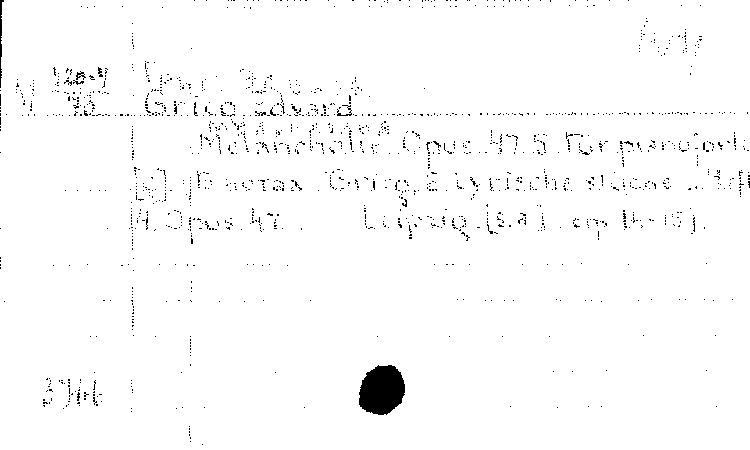 М 120-4
70
Григ Э
Grieg Edvard
Melancholie. Opus 47. 5. Für pianoforte
[C]. В нотах: Grieg, E. Lyrische stücke ... Heft
4. Opus 47. Leipzig. [s. a]. стр 14-15].
3746